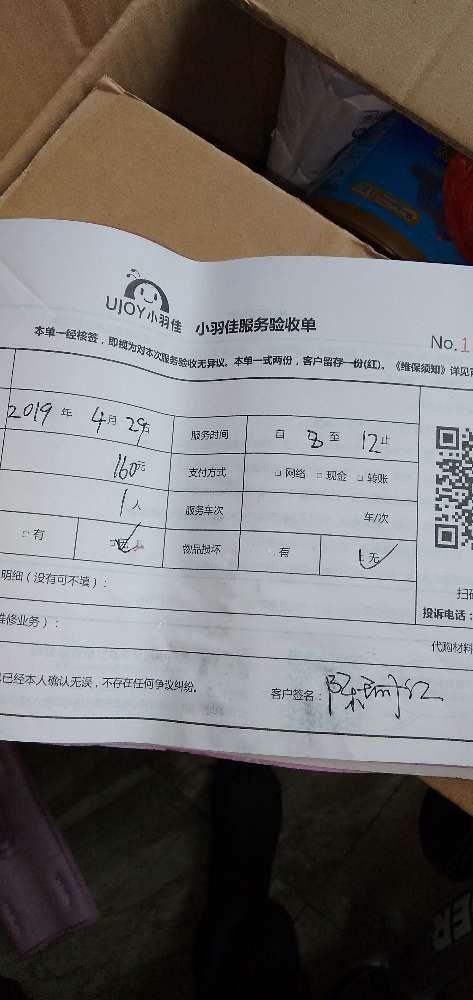 UJOY小羽佳 小羽佳服务验收单
No.1
本单一经核签，即视为对本次服务验收无异议。本单一式两份，客户留存一份(红)。《维保须知》详见
2019 年 4月 29日 服务时间 自 8 至 12止
160元 支付方式 □网络 □现金 □转账
1人 服务车次 车/次
□有 物品损坏 有 无
明细（没有可不填）：
扫
投诉电话：
维修业务）：
代购材料
已经本人确认无误，不存在任何争议纠纷。 客户签名：